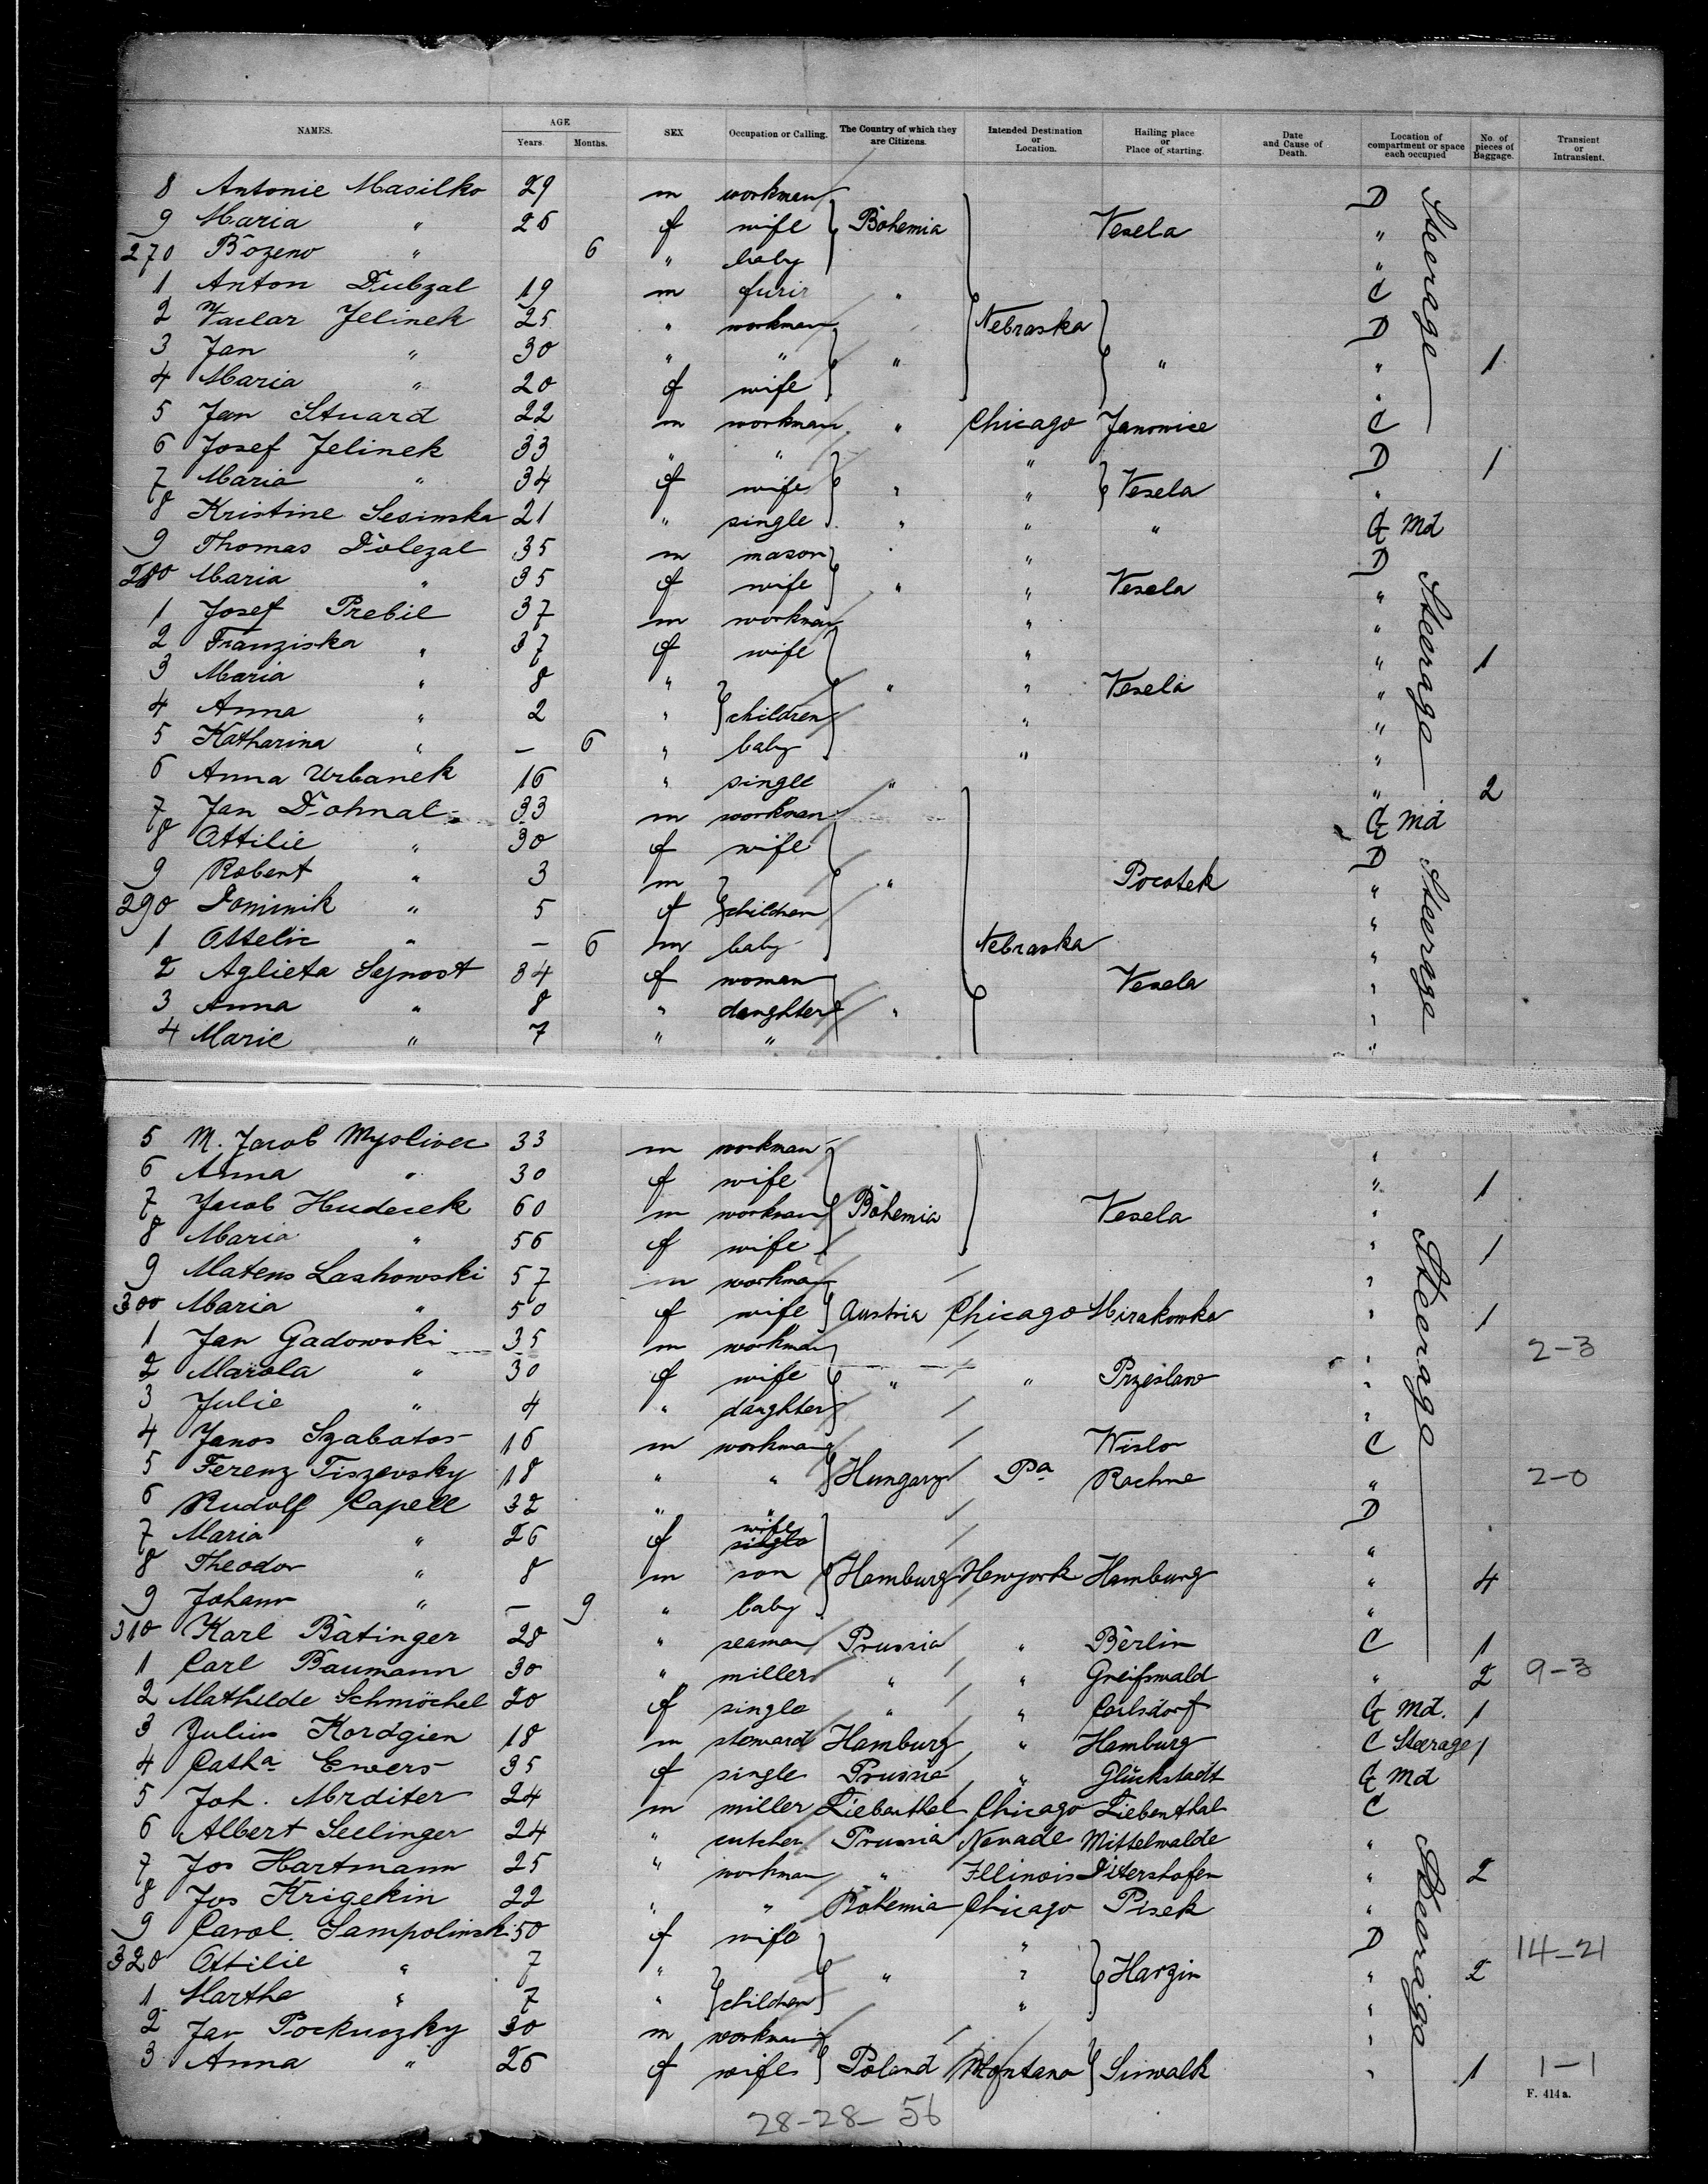 NAMES. AGE Years. Months. SEX Occupation or Calling. The Country of which they are Citizens. Intended Destination or Location. Hailing place or Place of starting. Date and Cause of Death. Location of compartment or space each occupied No. of pieces of Baggage. Transient or Intransient.
8 Antonie Masilko 29 m workman D Steerage
9 Maria " 26 f wife Bohemia Vesela "
270 Bozena " 6 " baby "
1 Anton Dubzal 19 m furir " C
2 Vaclav Jelinek 25 " workman Nebraska D
3 Jan " 30 " " " " " 1
4 Maria " 20 f wife "
5 Jan Stuard 22 m workman " Chicago Janowice C
6 Josef Jelinek 33 " " " D 1
7 Maria " 34 f wife " " Vesela "
8 Kristine Sesimska 21 " single " " " G Md
9 Thomas Dolezal 35 m mason " D
280 Maria " 35 f wife " " Vesela " Steerage
1 Josef Prebil 37 m workman " "
2 Franziska " 37 f wife " " 1
3 Maria " 8 " " " Vesela "
4 Anna " 2 " children " "
5 Katharina " — 6 " baby " "
6 Anna Urbanek 16 " single " " 2
7 Jan Dohnal 33 m workman G Md
8 Ottilie " 30 f wife D Steerage
9 Robert " 3 m " Pocatek "
290 Dominik " 5 f children "
1 Ottelie " — 6 m baby Nebraska "
2 Aglieta Sejnost 34 f woman Vesela "
3 Anna " 8 " daughter " "
4 Marie " 7 " " "
5 M. Jacob Myslivec 33 m workman "
6 Anna " 30 f wife " 1
7 Jacob Hudecek 60 m workman Bohemia Vesela "
8 Maria " 56 f wife " 1 Steerage
9 Matens Lashowski 57 m workman "
300 Maria " 50 f wife Austria Chicago Mirakowka " 1
1 Jan Gadowski 35 m workman " 2-3
2 Marola " 30 f wife " " Przeslaw "
3 Julie " 4 " daughter "
4 Janos Szabatos 16 m workman Wislo C
5 Ferenz Tiszevsky 18 " " Hungary Pa Rachne " 2-0
6 Rudolf Capell 32 " " D
7 Maria " 26 f wife single "
8 Theodor " 8 m son Hamburg Newyork Hamburg " 4
9 Johann " — 9 " baby "
310 Karl Bätinger 28 " seaman Prussia " Berlin C 1
1 Carl Baumann 30 " miller " " Greifswald " 2 9-3
2 Mathilde Schmöchel 20 f single " " Carlsdorf G Md. 1
3 Julius Kordgien 18 m steward Hamburg " Hamburg C Steerage 1
4 Catha Ewers 35 f single Prussia " Glückstadt G Md
5 Joh. Mrditer 24 m miller Liebenthal Chicago Liebenthal C
6 Albert Seelinger 24 " butcher Prussia Nevade Mittelwalde " Steerage
7 Jos Hartmann 25 " workman " Illinois Ditershofen " 2
8 Jos Krigekin 22 " " Bohemia Chicago Pisek "
9 Carol. Sampolinski 50 f wife " D 14-21
320 Ottilie " 7 " " " Harzin " 2
1 Marthe " 7 " children " "
2 Jan Pockuszky 30 m workman "
3 Anna " 26 f wife Poland Montana Suwalk " 1 1-1
F. 414 a.
28-28- 56